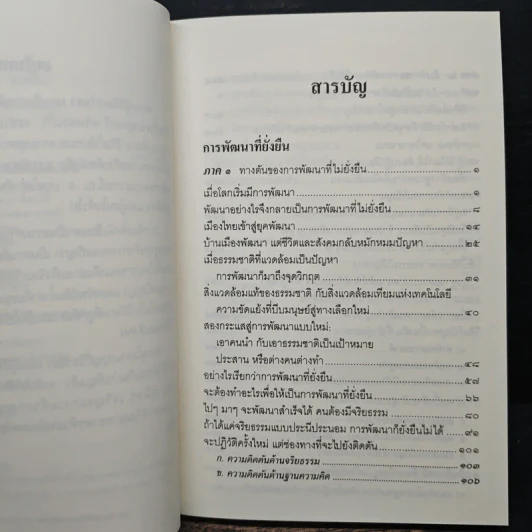 สารบัญ
การพัฒนาที่ยั่งยืน
ภาค ๑ ทางตันของการพัฒนาที่ไม่ยั่งยืน ๑
เมื่อโลกเริ่มมีการพัฒนา ๑
พัฒนาอย่างไรจึงกลายเป็นการพัฒนาที่ไม่ยั่งยืน ๘
เมืองไทยเข้าสู่ยุคพัฒนา ๑๔
บ้านเมืองพัฒนา แต่ชีวิตและสังคมกลับหมักหมมปัญหา ๒๕
เมื่อธรรมชาติที่แวดล้อมเป็นปัญหา
การพัฒนาก็มาถึงจุดวิกฤต ๓๑
สิ่งแวดล้อมแท้ของธรรมชาติ กับสิ่งแวดล้อมเทียมแห่งเทคโนโลยี
ความขัดแย้งที่บีบมนุษย์สู่ทางเลือกใหม่ ๔๐
สองกระแสสู่การพัฒนาแบบใหม่:
เอาคนนำ กับเอาธรรมชาติเป็นเป้าหมาย
ประสาน หรือต่างคนต่างทำ ๔๘
อย่างไรเรียกว่าการพัฒนาที่ยั่งยืน ๕๗
จะต้องทำอะไรเพื่อให้เป็นการพัฒนาที่ยั่งยืน ๖๖
ไปๆ มาๆ จะพัฒนาสำเร็จได้ คนต้องมีจริยธรรม ๘๐
ถ้าได้แค่จริยธรรมแบบประนีประนอม การพัฒนาก็ยั่งยืนไม่ได้ ๙๑
จะปฏิวัติครั้งใหม่ แต่ช่องทางที่จะไปยังติดตัน ๑๐๑
ก. ความคิดตันด้านจริยธรรม ๑๐๓
ข. ความคิดตันด้านฐานความคิด ๑๐๖